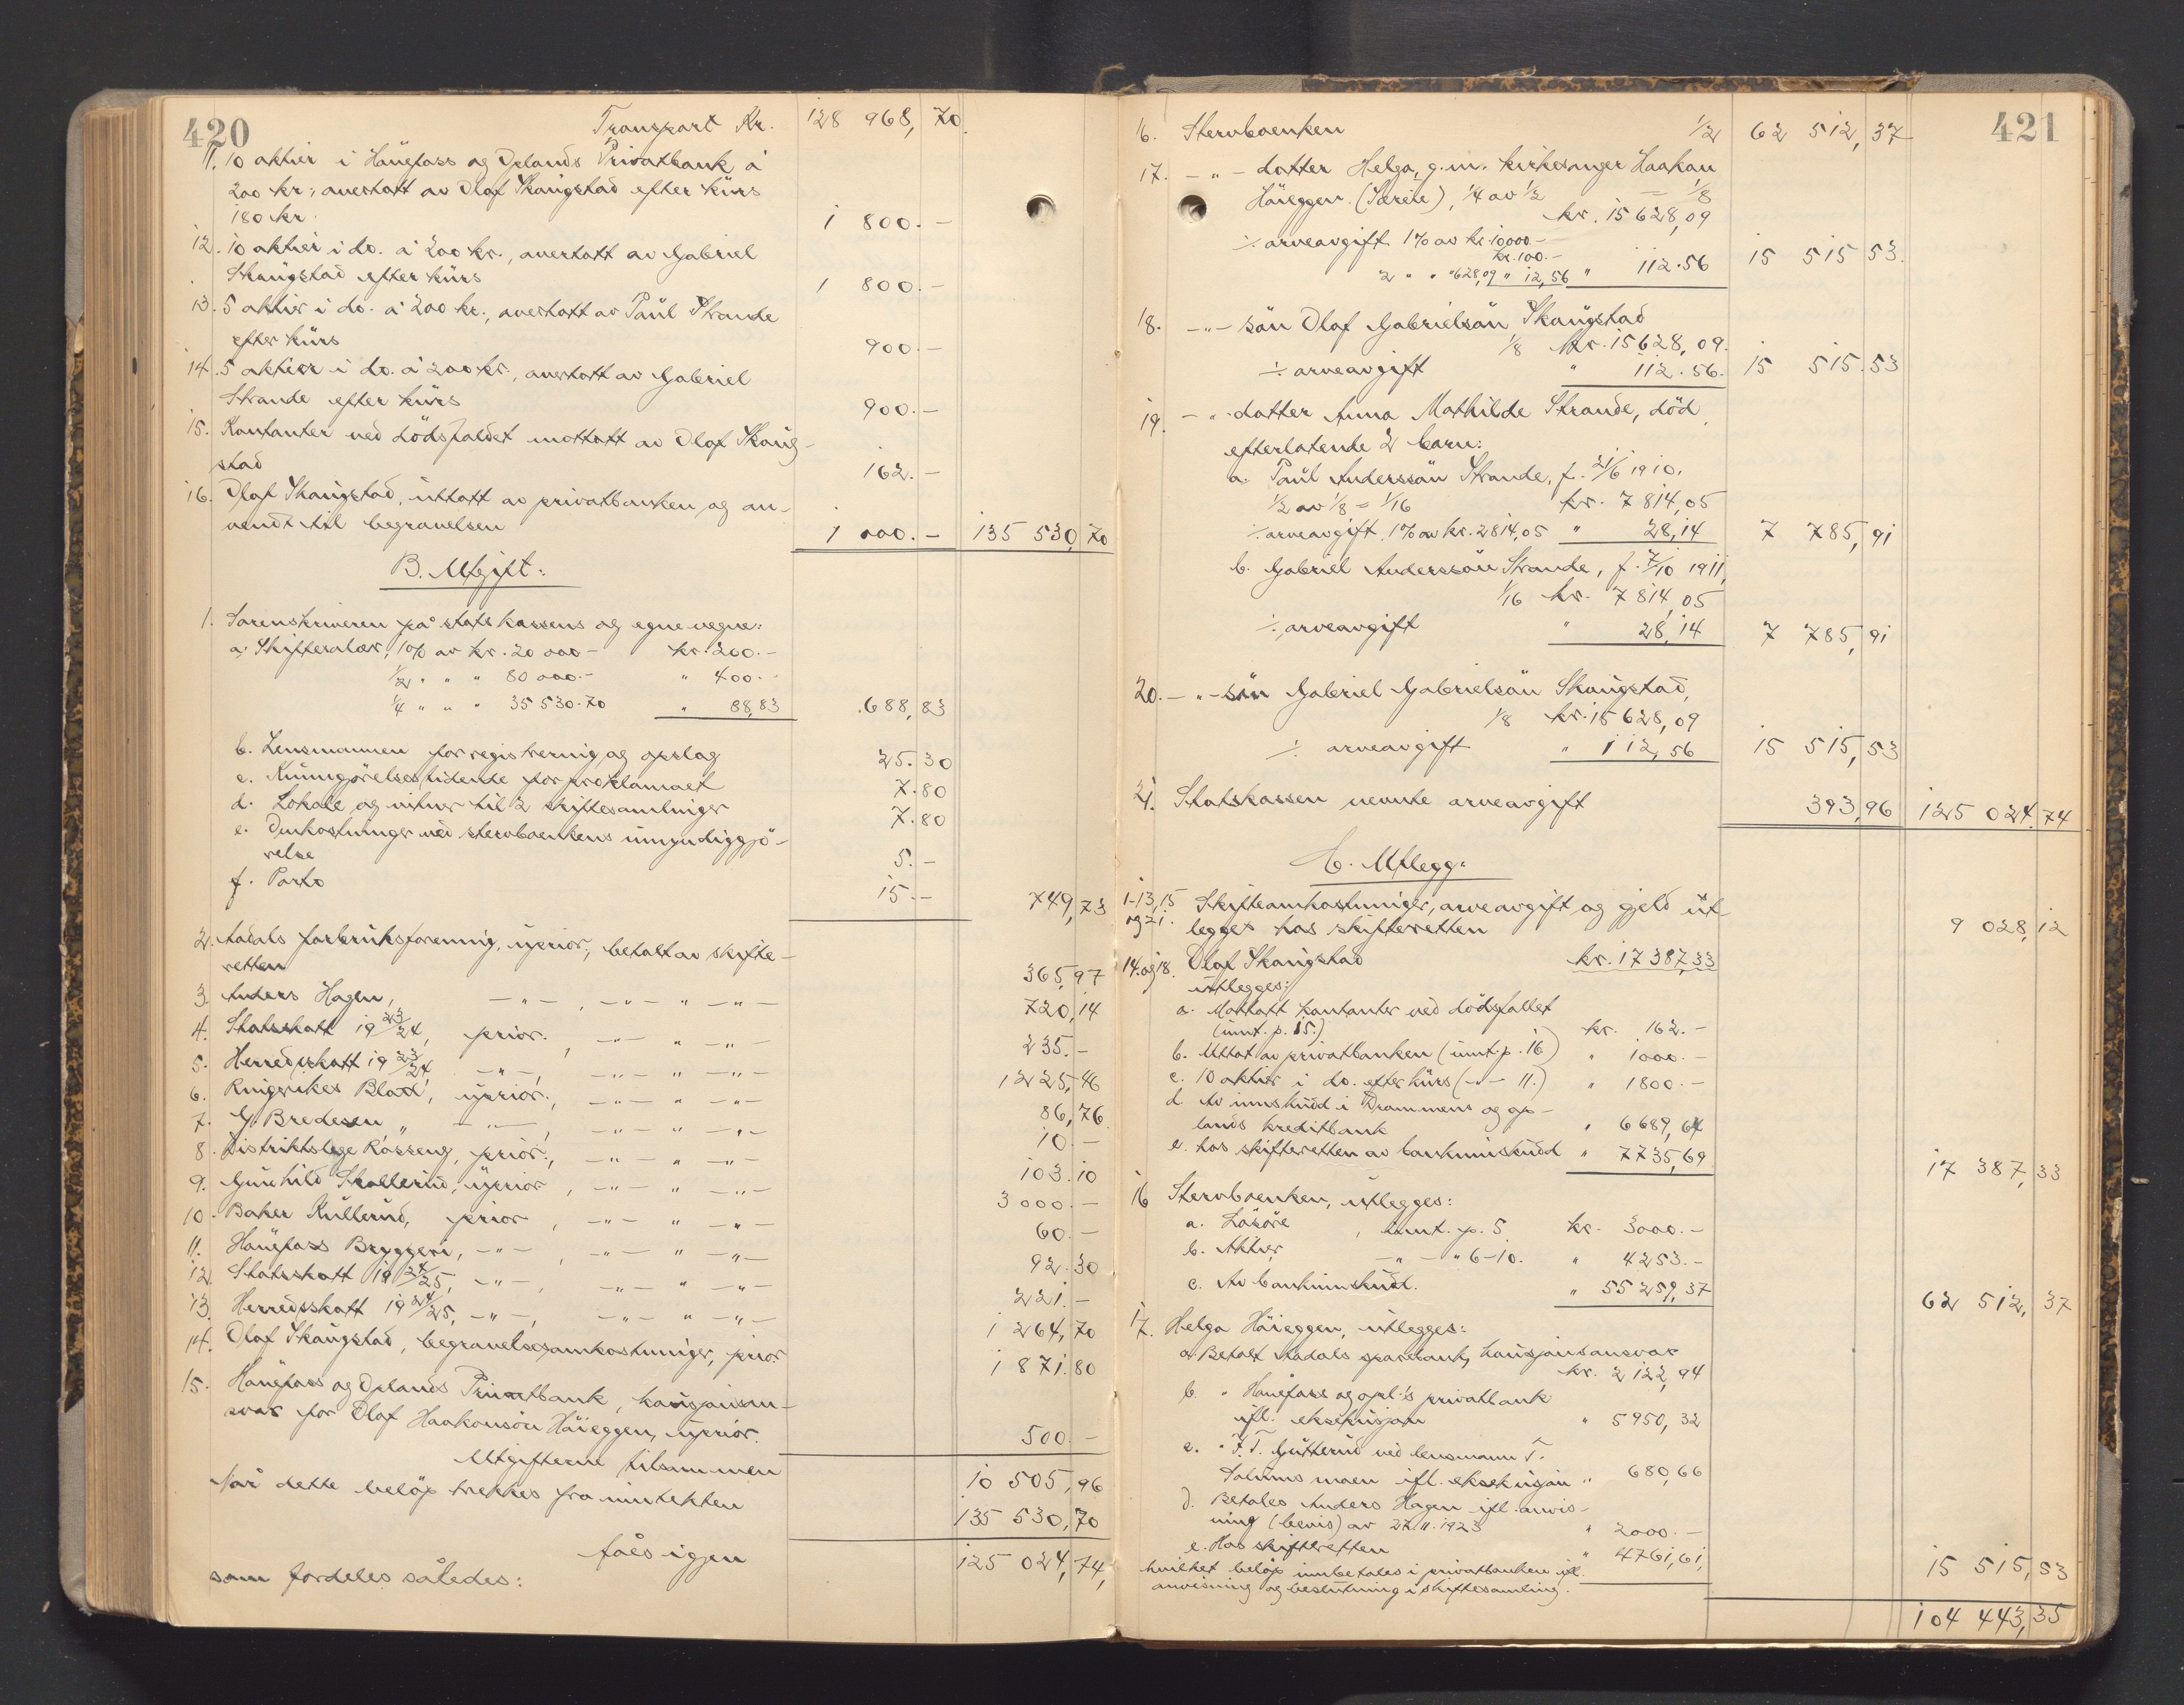 420
Transport Kr. 128 968,70
11. 10 aktier i Hønefoss og Oplands Privatbank á
200 kr., overtatt av Olaf Skaugstad efter kurs
180 kr. 1 800.-
12. 10 aktier i do. á 200 kr., overtatt av Gabriel
Skaugstad efter kurs 1 800.-
13. 5 aktier i do. á 200 kr., overtatt av Paul Strande
efter kurs 900.-
14. 5 aktier i do. á 200 kr., overtatt av Gabriel
Strande efter kurs 900.-
15. Kontanter ved dödsfaldet mottatt av Olaf Skaug-
stad 162.-
16. Olaf Skaugstad, uttatt av privatbanken og an-
vendt til begravelsen 1 000.- 135 530,70
B. Utgift:
1. Sorenskriveren på statskassens og egne vegne:
a. Skiftesalær, 1% av kr. 20 000- kr. 200.-
1/2 " " " 80 000.- " 400.-
1/4 " " " 35 530.70 " 88,83 688,83
b. Lensmannen for registrering og opslag 25.30
c. Kunngjörelsestidende for proklamaet 7.80
d. Lokale og vitner til 2 skiftesamlinger 7.80
e. Omkostninger ved stervboenkens umyndiggjö-
relse 5.-
f. Porto 15.- 749,73
2. Aadals forbruksforening, uprior., betalt av skifte-
retten 365,97
3. Anders Hagen, -"-, -"- " -"- 720,14
4. Statsskatt 19 23/24, prior., -"- " -"- 235.-
5. Herredsskatt 19 23/24, -"-, -"- " -"- 1 225,46
6. Ringerikes Blad, uprior., -"- " -"- 86,76
7. G. Bredesen, -"-, -"- " -"- 10.-
8. Distriktslege Rosseng, prior., -"- " -"- 103.10
9. Gunhild Skollerud, uprior, -"- " -"- 3 000.-
10. Baker Kullerud, prior, -"- " -"- 60.-
11. Hønefoss Bryggeri, -"-, -"- " -"- 92.30
12. Statsskatt 19 24/25, -"-, -"- " -"- 221.-
13. Herredsskatt 19 24/25, -"-, -"- " -"- 1 264,70
14. Olaf Skaugstad, begravelsesomkostninger, prior. 1 871.80
15. Hønefoss og Oplands Privatbank, kausjonsan-
svar for Olaf Haakonsön Häieggen, uprior. 500.-
Utgifterne tilsammen 10 505,96
Når dette belöp trekkes fra inntekten 135 530,70
fåes igjen 125 024,74,
som fordeles således:
421
16. Stervboenken 1/2 62 512,37
17. -"- datter Helga, g.m. kirkesanger Haakon
Häieggen. (Særeie), 1/4 av 1/2 = 1/8
kr. 15 628,09
÷ arveavgift 1% av kr. 10000.-
kr. 100.-
2 " " " 628,09 " 12,56 " 112.56 15 515 53.
18. -"- sön Olaf Gabrielsön Skaugstad
1/8 kr. 15 628,09.
÷ arveavgift " 112.56. 15 515.53
19. -"- datter Anna Mathilde Strande, död
efterlatende 2 barn:
a. Paul Anderssön Strande, f. 21/6 1910.
1/2 av 1/8 = 1/16 kr. 7 814,05
÷ arveavgift, 1% av kr. 2814,05 " 28,14 7 785,91
b. Gabriel Anderssön Strande, f. 7/10 1911,
1/16 kr. 7 814,05
÷ arveavgift " 28,14 7 785,91
20. -"- sön Gabriel Gabrielsön Skaugstad,
1/8 kr. 15 628,09
÷ arveavgift " 112,56 15 515,53
21. Statskassen nevnte arveavgift 393,96 125 024.74
C. Utlegg:
1-13,15 og 21. Skifteomkostninger, arveavgift og gjeld ut-
legges hos skifteretten 9 028,12
14. og 18. Olaf Skaugstad kr. 17 387,33
utlegges:
a. Mottatt kontanter ved dödsfallet
(innt. p. 15.) kr. 162.-
b. Uttat av privatbanken (innt. p. 16) " 1000.-
c. 10 aktier i do. efter kurs (-"- 11.) " 1800.-
d. Av innskudd i Drammens og op-
lands kreditbank " 6 689,64
e. hos skifteretten av bankinnskudd " 7735,69 17 387,33
16 Stervboenken, utlegges:
a. Lösöre, innt. p. 5. kr. 3000.-
b. Aktier, -"- " 6-10. " 4253.-
c. Av bankinnskudd. " 55 259,37 62 512,37
17. Helga Häieggen, utlegges:
a. Betalt Aadals sparebank, kausjonsansvar
kr. 2 122,94
b. " Hønefoss og opl.'s privatbank
ifl. eksekusjon " 5950,32
c. " F.T. Gutterud ved lensmann T.
Solumsmoen ifl. eksekusjon " 680,66
d. Betales Anders Hagen ifl. anvis-
ning (bevis) av 27.11.1923 " 2000.-
e. Hos skifteretten " 4761,61,
hvilket belöp innbetales i privatbanken ifl.
anvisning og beslutning i skiftesamling. 15 515,53
104 443,35